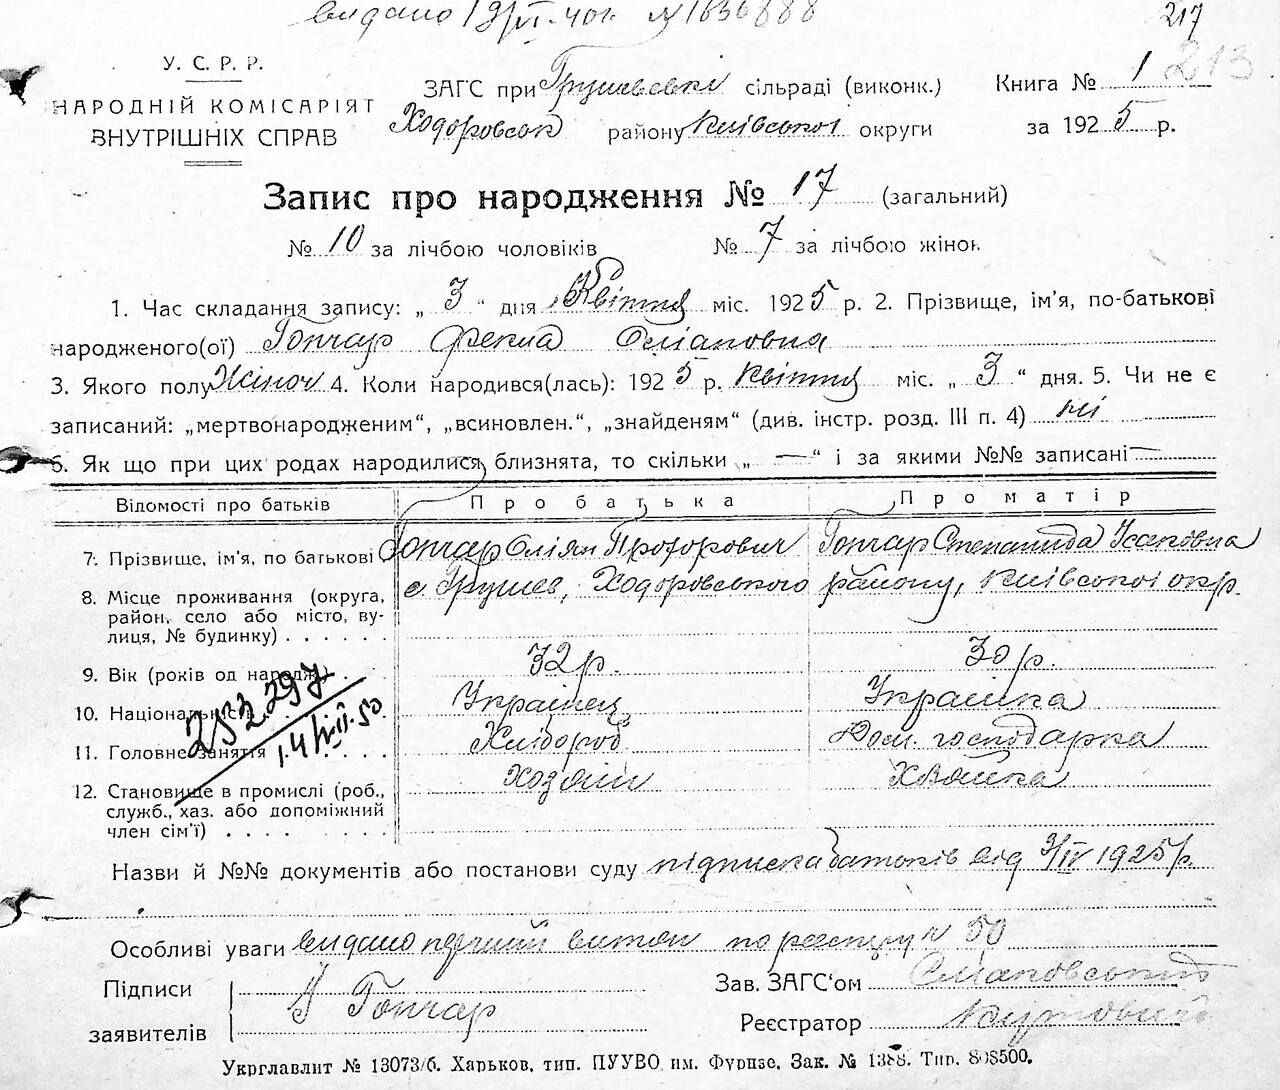 видано 19/VI-40г. № 1636888
217
213
У. С. Р. Р.
НАРОДНІЙ КОМІСАРІЯТ
ВНУТРІШНІХ СПРАВ
ЗАГС при Грушевські сільраді (виконк.)
Ходоровськ району Київської округи
Книга № 1
за 1925 р.
Запис про народження № 17 (загальний)
№ 10 за лічбою чоловіків № 7 за лічбою жінок
1. Час складання запису: „ 3 “ дня Квітня міс. 1925 р. 2. Прізвище, ім’я, по-батькові
народженого(ої) Гончар Фекла Оліановна
3. Якого полу Жіноч 4. Коли народився(лась): 1925 р. Квітня міс. „ 3 “ дня. 5. Чи не є
записаний: „мертвонародженим“, „всиновлен.“, „знайденям“ (див. інстр. розд. III п. 4) ні
6. Як що при цих родах народилися близнята, то скільки „ — “ і за якими №№ записані —
Відомості про батьків Про батька Про матір
7. Прізвище, ім’я, по батькові Гончар Оліян Прохорович Гончар Степанида Ісаковна
8. Місце проживання (округа, район, село або місто, вулиця, № будинку) с Грушев, Ходоровського району, Київської окр.
9. Вік (років од народж.) 32 р. 30 р.
10. Національність Українец Українка
11. Головне заняття Хлібороб Дом. господарка
12. Становище в промислі (роб., служб., хаз. або допоміжний член сім’ї) Хозяїн Хазяйка
253297
14/III-50
Назви й №№ документів або постанови суду підписка батьків від 3/IV 1925 р.
Особливі уваги видано перший витяг по реестру № 50
Підписи
заявителів Гончар
Зав. ЗАГС‘ом
Реєстратор
Укрглавлит № 13073/б. Харьков, тип. ПУУВО им. Фрунзе. Зак. № 1388. Тир. 808500.